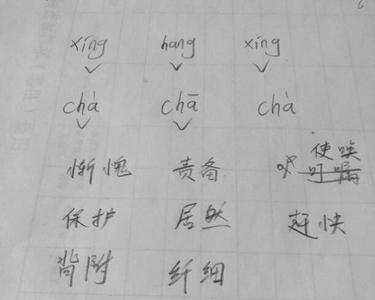 xíng hang xíng
chà chā chà
使唤
惭愧 责备
保护 居然 赶快
背附 纤细